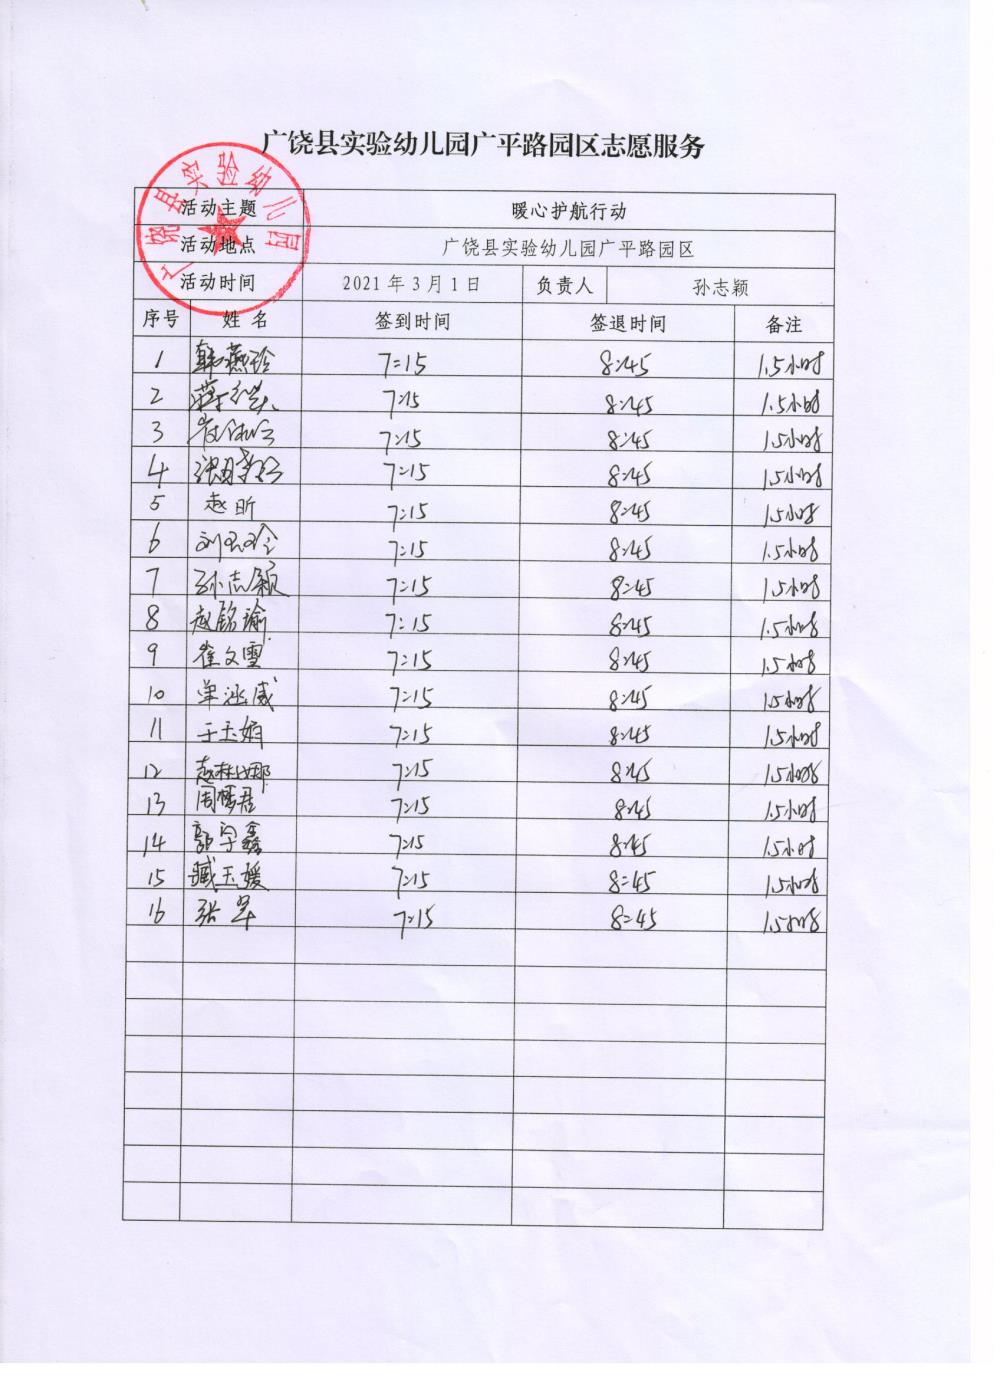 广饶县实验幼儿园广平路园区志愿服务
广饶县实验幼儿园
活动主题 暖心护航行动
活动地点 广饶县实验幼儿园广平路园区
活动时间 2021年3月1日 负责人 孙志颖
序号 姓名 签到时间 签退时间 备注
1 韩燕玲 7:15 8:45 1.5小时
2 7:15 8:45 1.5小时
3 7:15 8:45 1.5小时
4 7:15 8:45 1.5小时
5 赵昕 7:15 8:45 1.5小时
6 刘玉玲 7:15 8:45 1.5小时
7 孙志颖 7:15 8:45 1.5小时
8 赵铭瑜 7:15 8:45 1.5小时
9 崔文雪 7:15 8:45 1.5小时
10 7:15 8:45 1.5小时
11 于玉娟 7:15 8:45 1.5小时
12 7:15 8:45 1.5小时
13 周梦君 7:15 8:45 1.5小时
14 郭宇鑫 7:15 8:45 1.5小时
15 臧玉媛 7:15 8:45 1.5小时
16 7:15 8:45 1.5小时